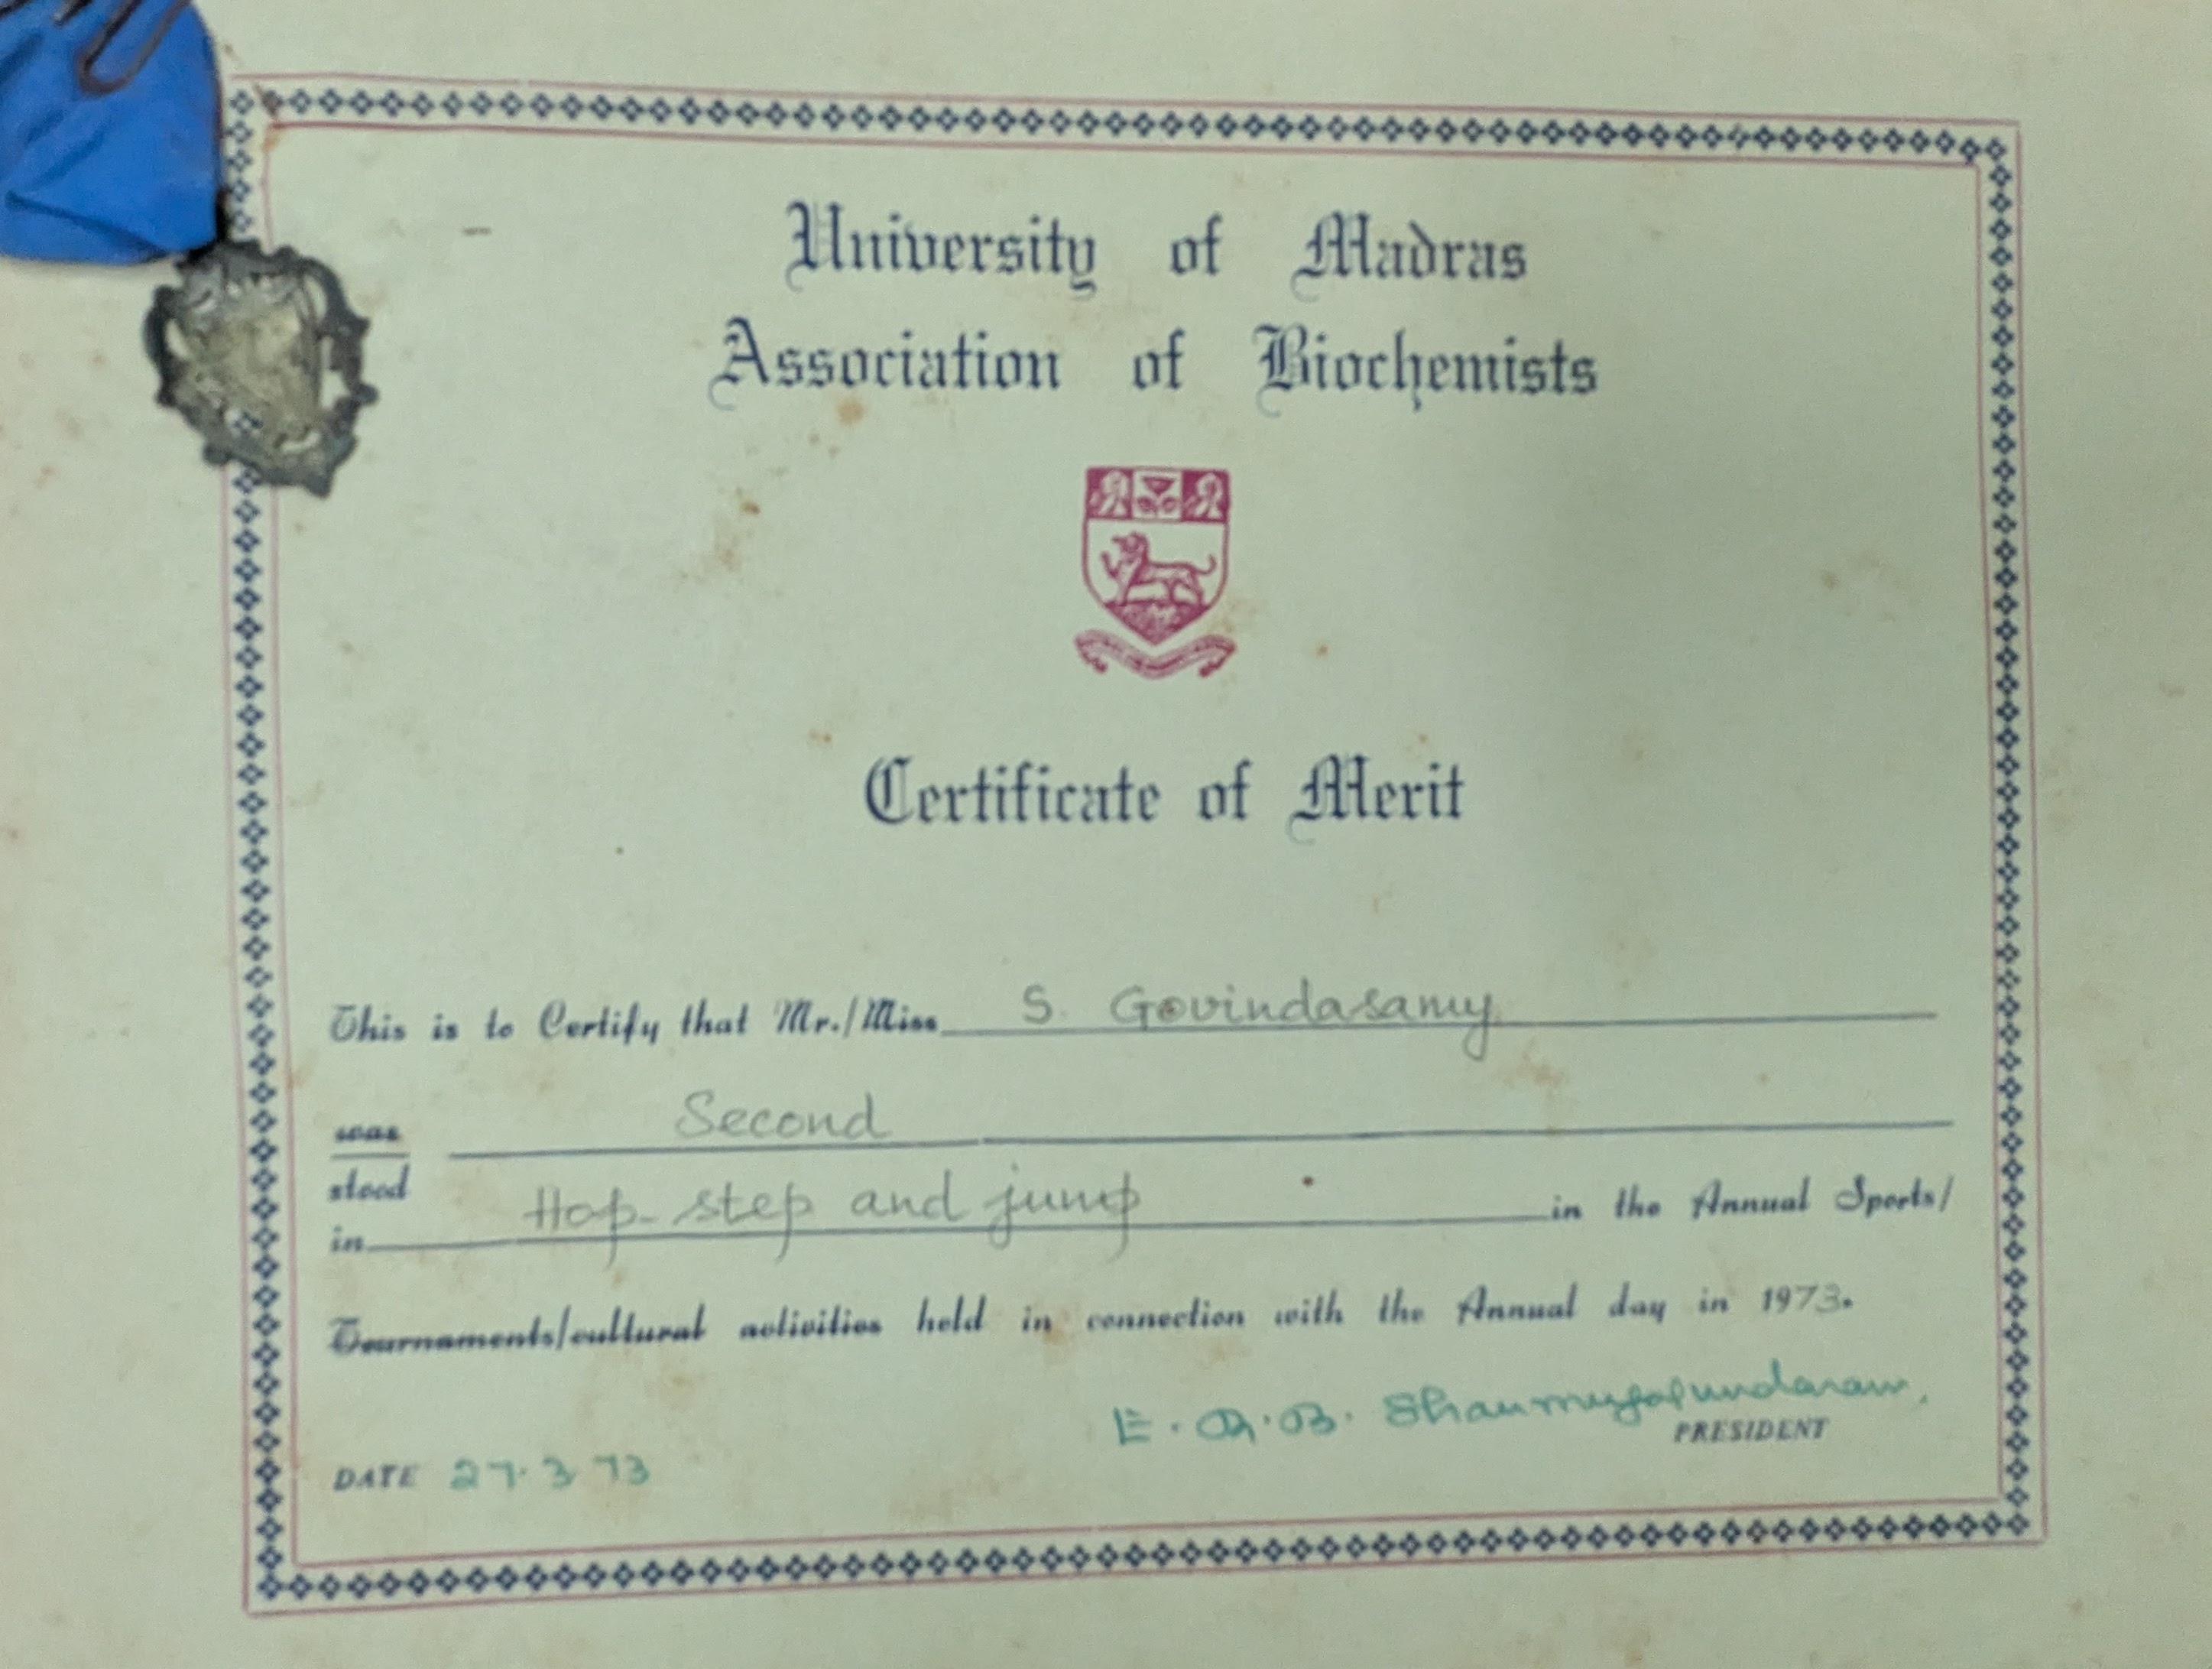 University of Madras
Association of Biochemists
Certificate of Merit
This is to Certify that Mr./Miss S. Govindasamy
was
Second
stood
in Hop-step and jump in the Annual Sports/
Tournaments/cultural activities held in connection with the Annual day in 1973.
E.R.B. Shanmugasundaram,
PRESIDENT
DATE 27.3 73